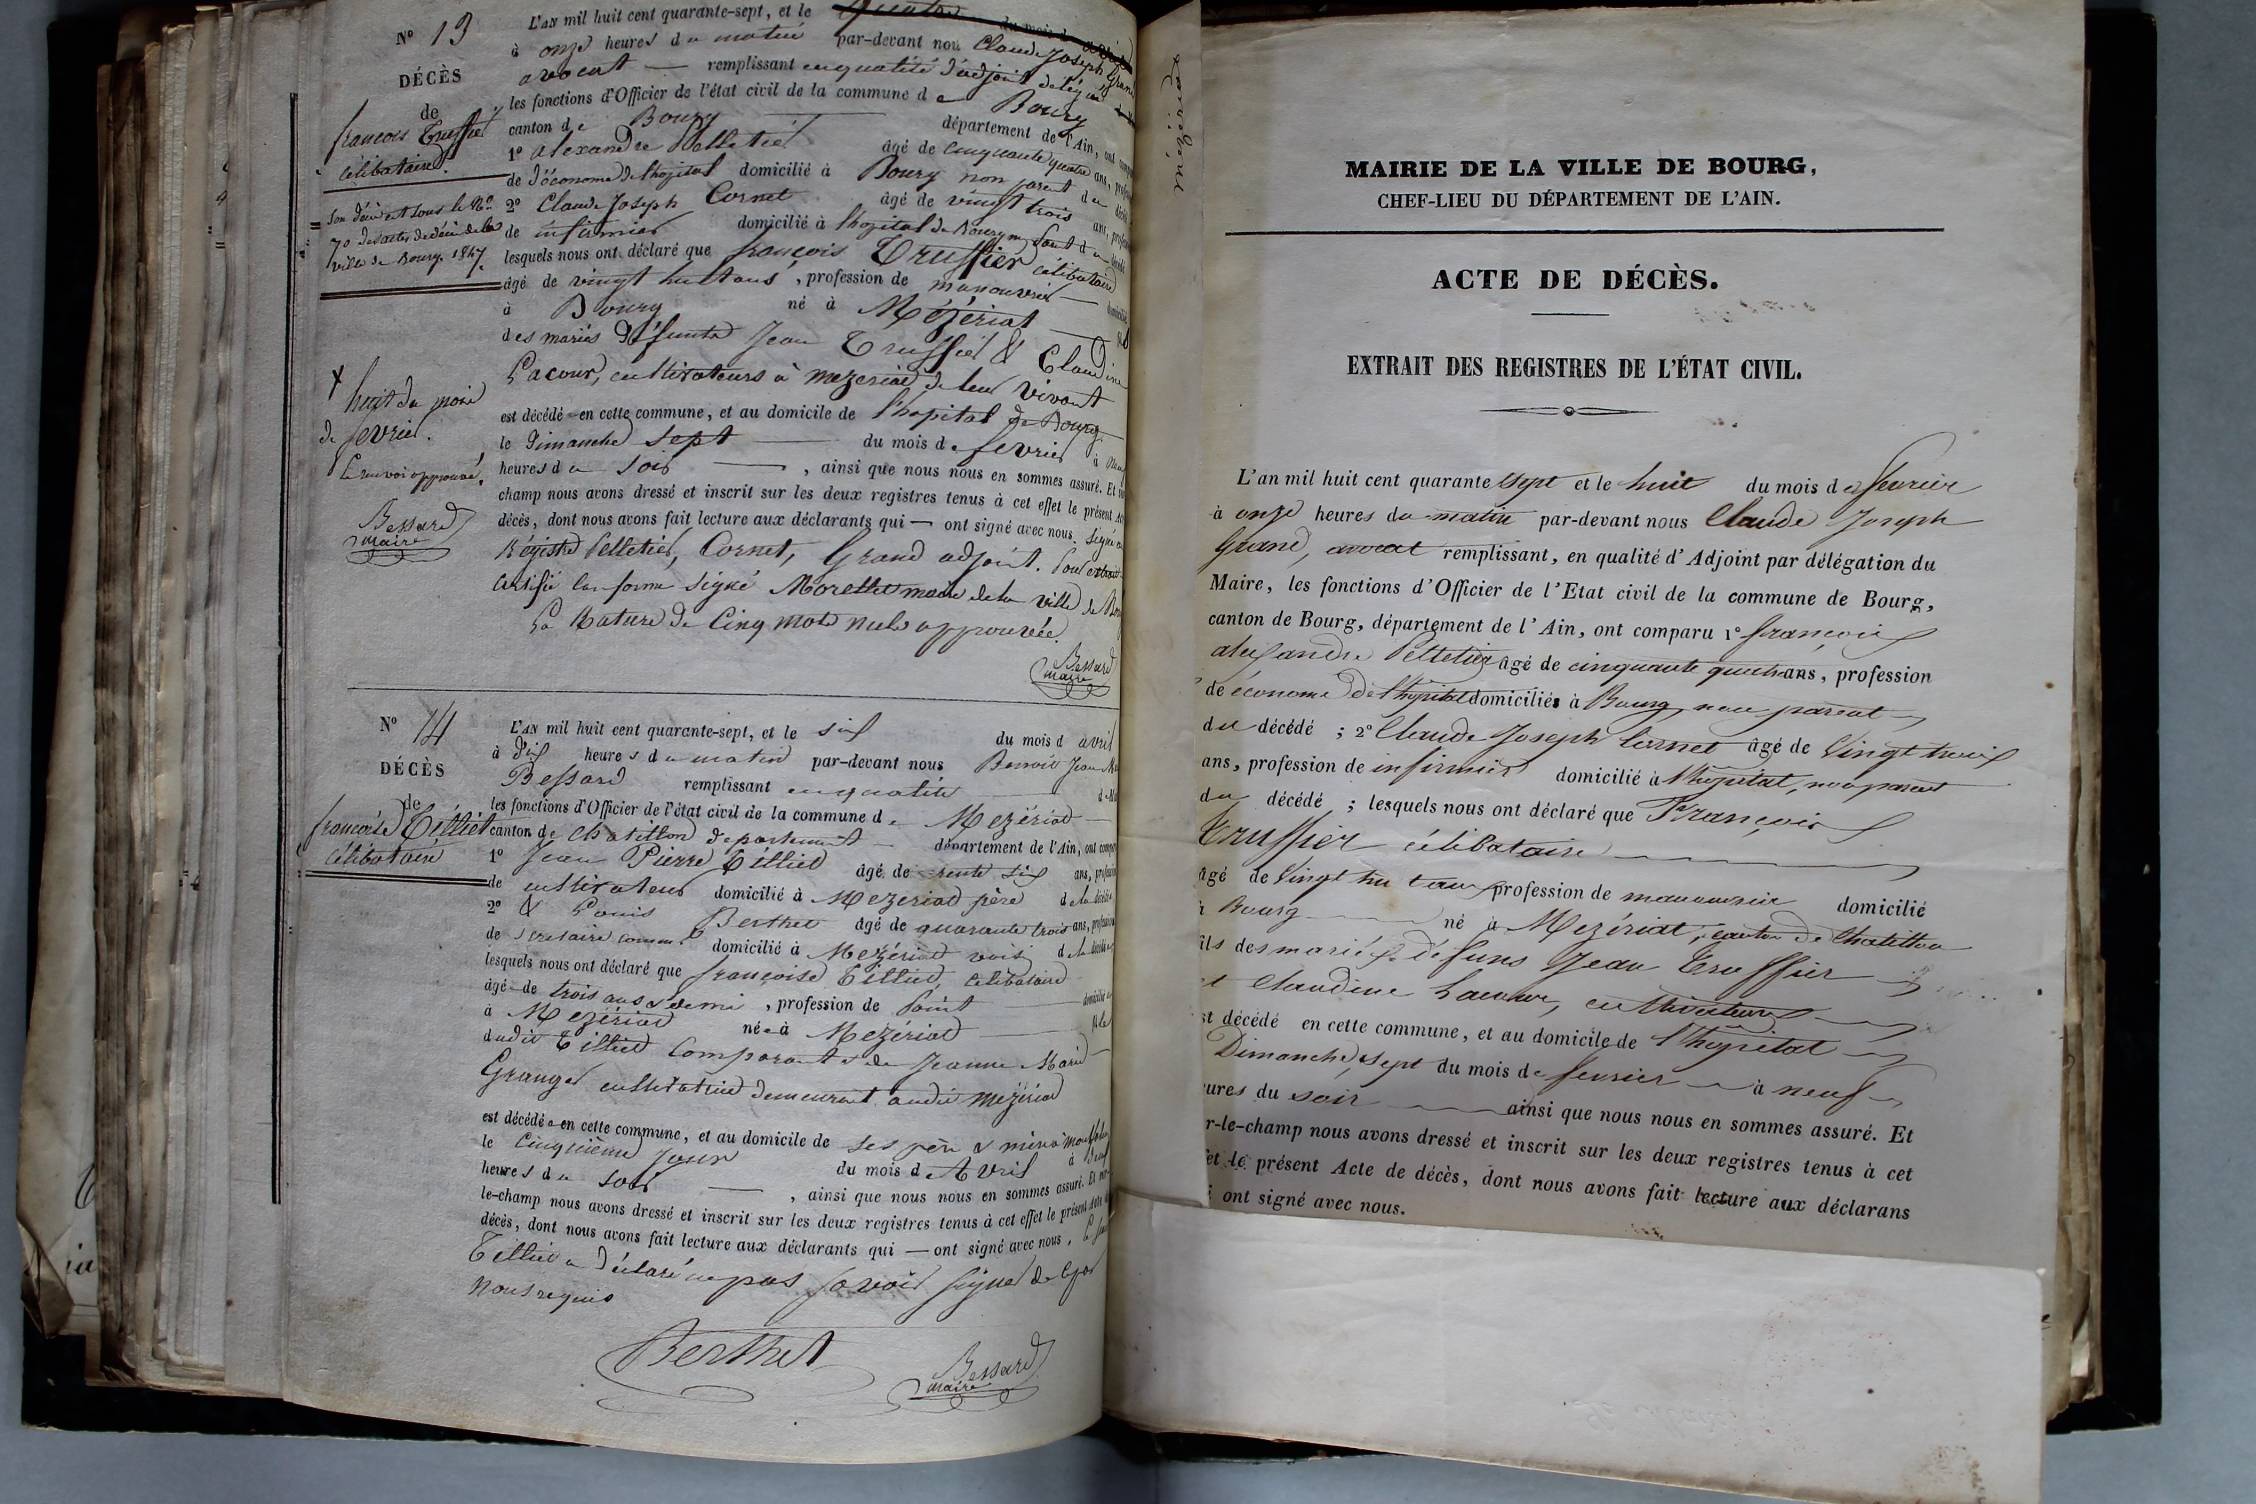 N° 13
DÉCÈS
de
françois Truffier
célibataire.
son décès est sous le N°
70 des actes de décès de la
ville de Bourg. 1847.
+ huit du mois
de fevrier.
Le renvoi approuvé.
Bessard
maire
L'AN mil huit cent quarante-sept, et le
à onze heures du matin par-devant nou Claude Joseph Grand
avocat — remplissant en qualité d'adjoint délégué
les fonctions d'Officier de l'état civil de la commune d e Bourg
canton de Bourg département de l'Ain, ont
1° alexandre Pelletier âgé de cinquante quatre ans,
de d'économe de l'hôpital domicilié à Bourg non parent du
2° Claude Joseph Cornet âgé de vingt trois ans,
de infirmier domicilié à l'hopital de Bourg
lesquels nous ont déclaré que françois Truffier célibataire
âgé de vingt huit ans, profession de manouvrier
à Bourg né à Mézériat
des mariés défunts Jean Truffier & Claudine
Lacour, cultivateurs à mezeriat de leur vivant
est décédé en cette commune, et au domicile de l'hopital de Bourg
le dimanche sept du mois de fevrier à
heures du soir — , ainsi que nous nous en sommes assuré. Et
champ nous avons dressé et inscrit sur les deux registres tenus à cet effet le présent
décès, dont nous avons fait lecture aux déclarants qui — ont signé avec nous. Signé au
Régistre Pelletier, Cornet, Grand adjoint. Pour extrait
certifié conforme signé Morellet maire de la ville de
La Rature de Cinq mots nuls approuvée.
Bessard
maire
N° 14
DÉCÈS
de
françoise Tillier
célibataire
L'AN mil huit cent quarante-sept, et le six du mois d avril
à dix heures du matin par-devant nous Benoit Jean
Bessard remplissant en qualité
les fonctions d'Officier de l'état civil de la commune d e Mezériat
canton de chatillon département département de l'Ain, ont
1° Jean Pierre Tillier âgé de trente six ans,
de cultivateur domicilié à Mezériat père de la
2° & Louis Berthet âgé de quarante trois ans,
de secretaire domicilié à Mezériat de la
lesquels nous ont déclaré que françoise Tillier, célibataire
âgé e de trois ans & demi , profession de Point
à Mezériat né e à Mezériat
dudit Tillier Comparant & de Jeanne Marie
Granger cultivatrice demeurant audit mezériat
est décédé e en cette commune, et au domicile de ses père & mère
le Cinquième Jour du mois d'Avril à
heures du soir — , ainsi que nous nous en sommes assuré. Et
le-champ nous avons dressé et inscrit sur les deux registres tenus à cet effet le présent
décès, dont nous avons fait lecture aux déclarants qui — ont signé avec nous.
Tillier a déclaré ne pas savoir signer de
nous requis
Berthet
Bessard
maire
MAIRIE DE LA VILLE DE BOURG,
CHEF-LIEU DU DÉPARTEMENT DE L'AIN.
ACTE DE DÉCÈS.
EXTRAIT DES REGISTRES DE L'ÉTAT CIVIL.
L'an mil huit cent quarante sept et le huit du mois de fevrier
à onze heures du matin par-devant nous Claude Joseph
Grand, avocat remplissant, en qualité d'Adjoint par délégation du
Maire, les fonctions d'Officier de l'Etat civil de la commune de Bourg,
canton de Bourg, département de l'Ain, ont comparu 1° françois
alexandre Pelletier âgé de cinquante quatre ans, profession
de économe de l'hôpital domiciliés à Bourg, non parent
du décédé ; 2° Claude Joseph Cornet âgé de Vingt trois
ans, profession de infirmier domicilié à l'hôpital, non parent
du décédé ; lesquels nous ont déclaré que François
Truffier célibataire
âgé de Vingt huit ans profession de manouvrier domicilié
à Bourg né à Mezériat, canton de Chatillon
ils des mariés défuns Jean Truffier
et Claudine Lacour, cultivateurs
st décédé en cette commune, et au domicile de l'hôpital
Dimanche, sept du mois de fevrier à neuf
ures du soir ainsi que nous nous en sommes assuré. Et
r-le-champ nous avons dressé et inscrit sur les deux registres tenus à cet
et le présent Acte de décès, dont nous avons fait lecture aux déclarans
i ont signé avec nous.